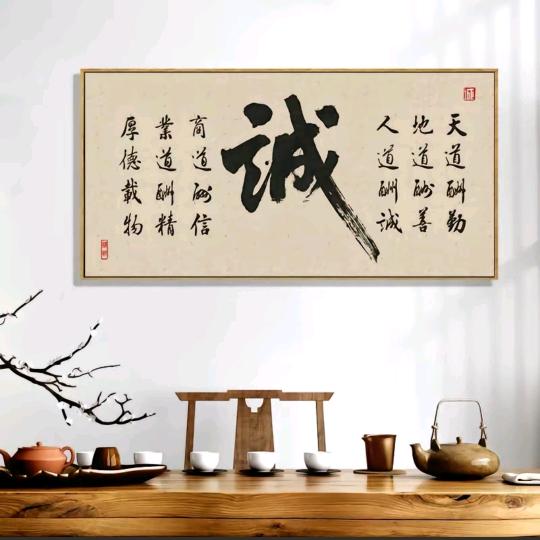 天道酬勤
地道酬善
人道酬誠
誠
商道酬信
業道酬精
厚德載物